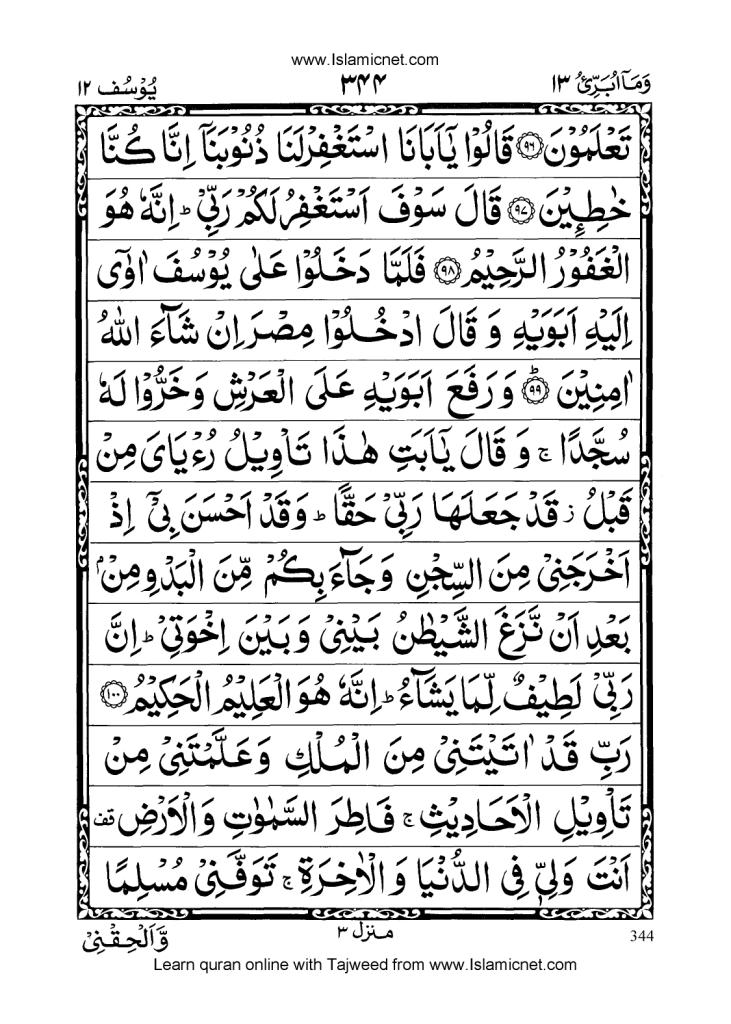 www.Islamicnet.com
وَمَآ اُبَرِّئُ ۱۳ ۳۴۴ يُوْسُف ۱۲
تَعْلَمُوْنَ ﴿۹۶﴾ قَالُوْا يٰۤاَبَانَا اسْتَغْفِرْلَنَا ذُنُوْبَنَآ اِنَّا كُنَّا
خٰطِـِٕيْنَ ﴿۹۷﴾ قَالَ سَوْفَ اَسْتَغْفِرُ لَكُمْ رَبِّيْ ؕ اِنَّهٗ هُوَ
الْغَفُوْرُ الرَّحِيْمُ ﴿۹۸﴾ فَلَمَّا دَخَلُوْا عَلٰى يُوْسُفَ اٰوٰٓى
اِلَيْهِ اَبَوَيْهِ وَ قَالَ ادْخُلُوْا مِصْرَ اِنْ شَآءَ اللّٰهُ
اٰمِنِيْنَ ﴿۹۹﴾ؕ وَ رَفَعَ اَبَوَيْهِ عَلَى الْعَرْشِ وَ خَرُّوْا لَهٗ
سُجَّدًا ۚ وَ قَالَ يٰۤاَبَتِ هٰذَا تَاْوِيْلُ رُءْيَايَ مِنْ
قَبْلُ ؗ قَدْ جَعَلَهَا رَبِّيْ حَقًّا ؕ وَ قَدْ اَحْسَنَ بِيْۤ اِذْ
اَخْرَجَنِيْ مِنَ السِّجْنِ وَ جَآءَ بِكُمْ مِّنَ الْبَدْوِ مِنْۢ
بَعْدِ اَنْ نَّزَغَ الشَّيْطٰنُ بَيْنِيْ وَ بَيْنَ اِخْوَتِيْ ؕ اِنَّ
رَبِّيْ لَطِيْفٌ لِّمَا يَشَآءُ ؕ اِنَّهٗ هُوَ الْعَلِيْمُ الْحَكِيْمُ ﴿۱۰۰﴾
رَبِّ قَدْ اٰتَيْتَنِيْ مِنَ الْمُلْكِ وَ عَلَّمْتَنِيْ مِنْ
تَاْوِيْلِ الْاَحَادِيْثِ ۚ فَاطِرَ السَّمٰوٰتِ وَ الْاَرْضِ قف
اَنْتَ وَلِيّٖ فِي الدُّنْيَا وَ الْاٰخِرَةِ ۚ تَوَفَّنِيْ مُسْلِمًا
وَّ اَلْحِقْنِيْ منزل ۳ 344
Learn quran online with Tajweed from www.Islamicnet.com